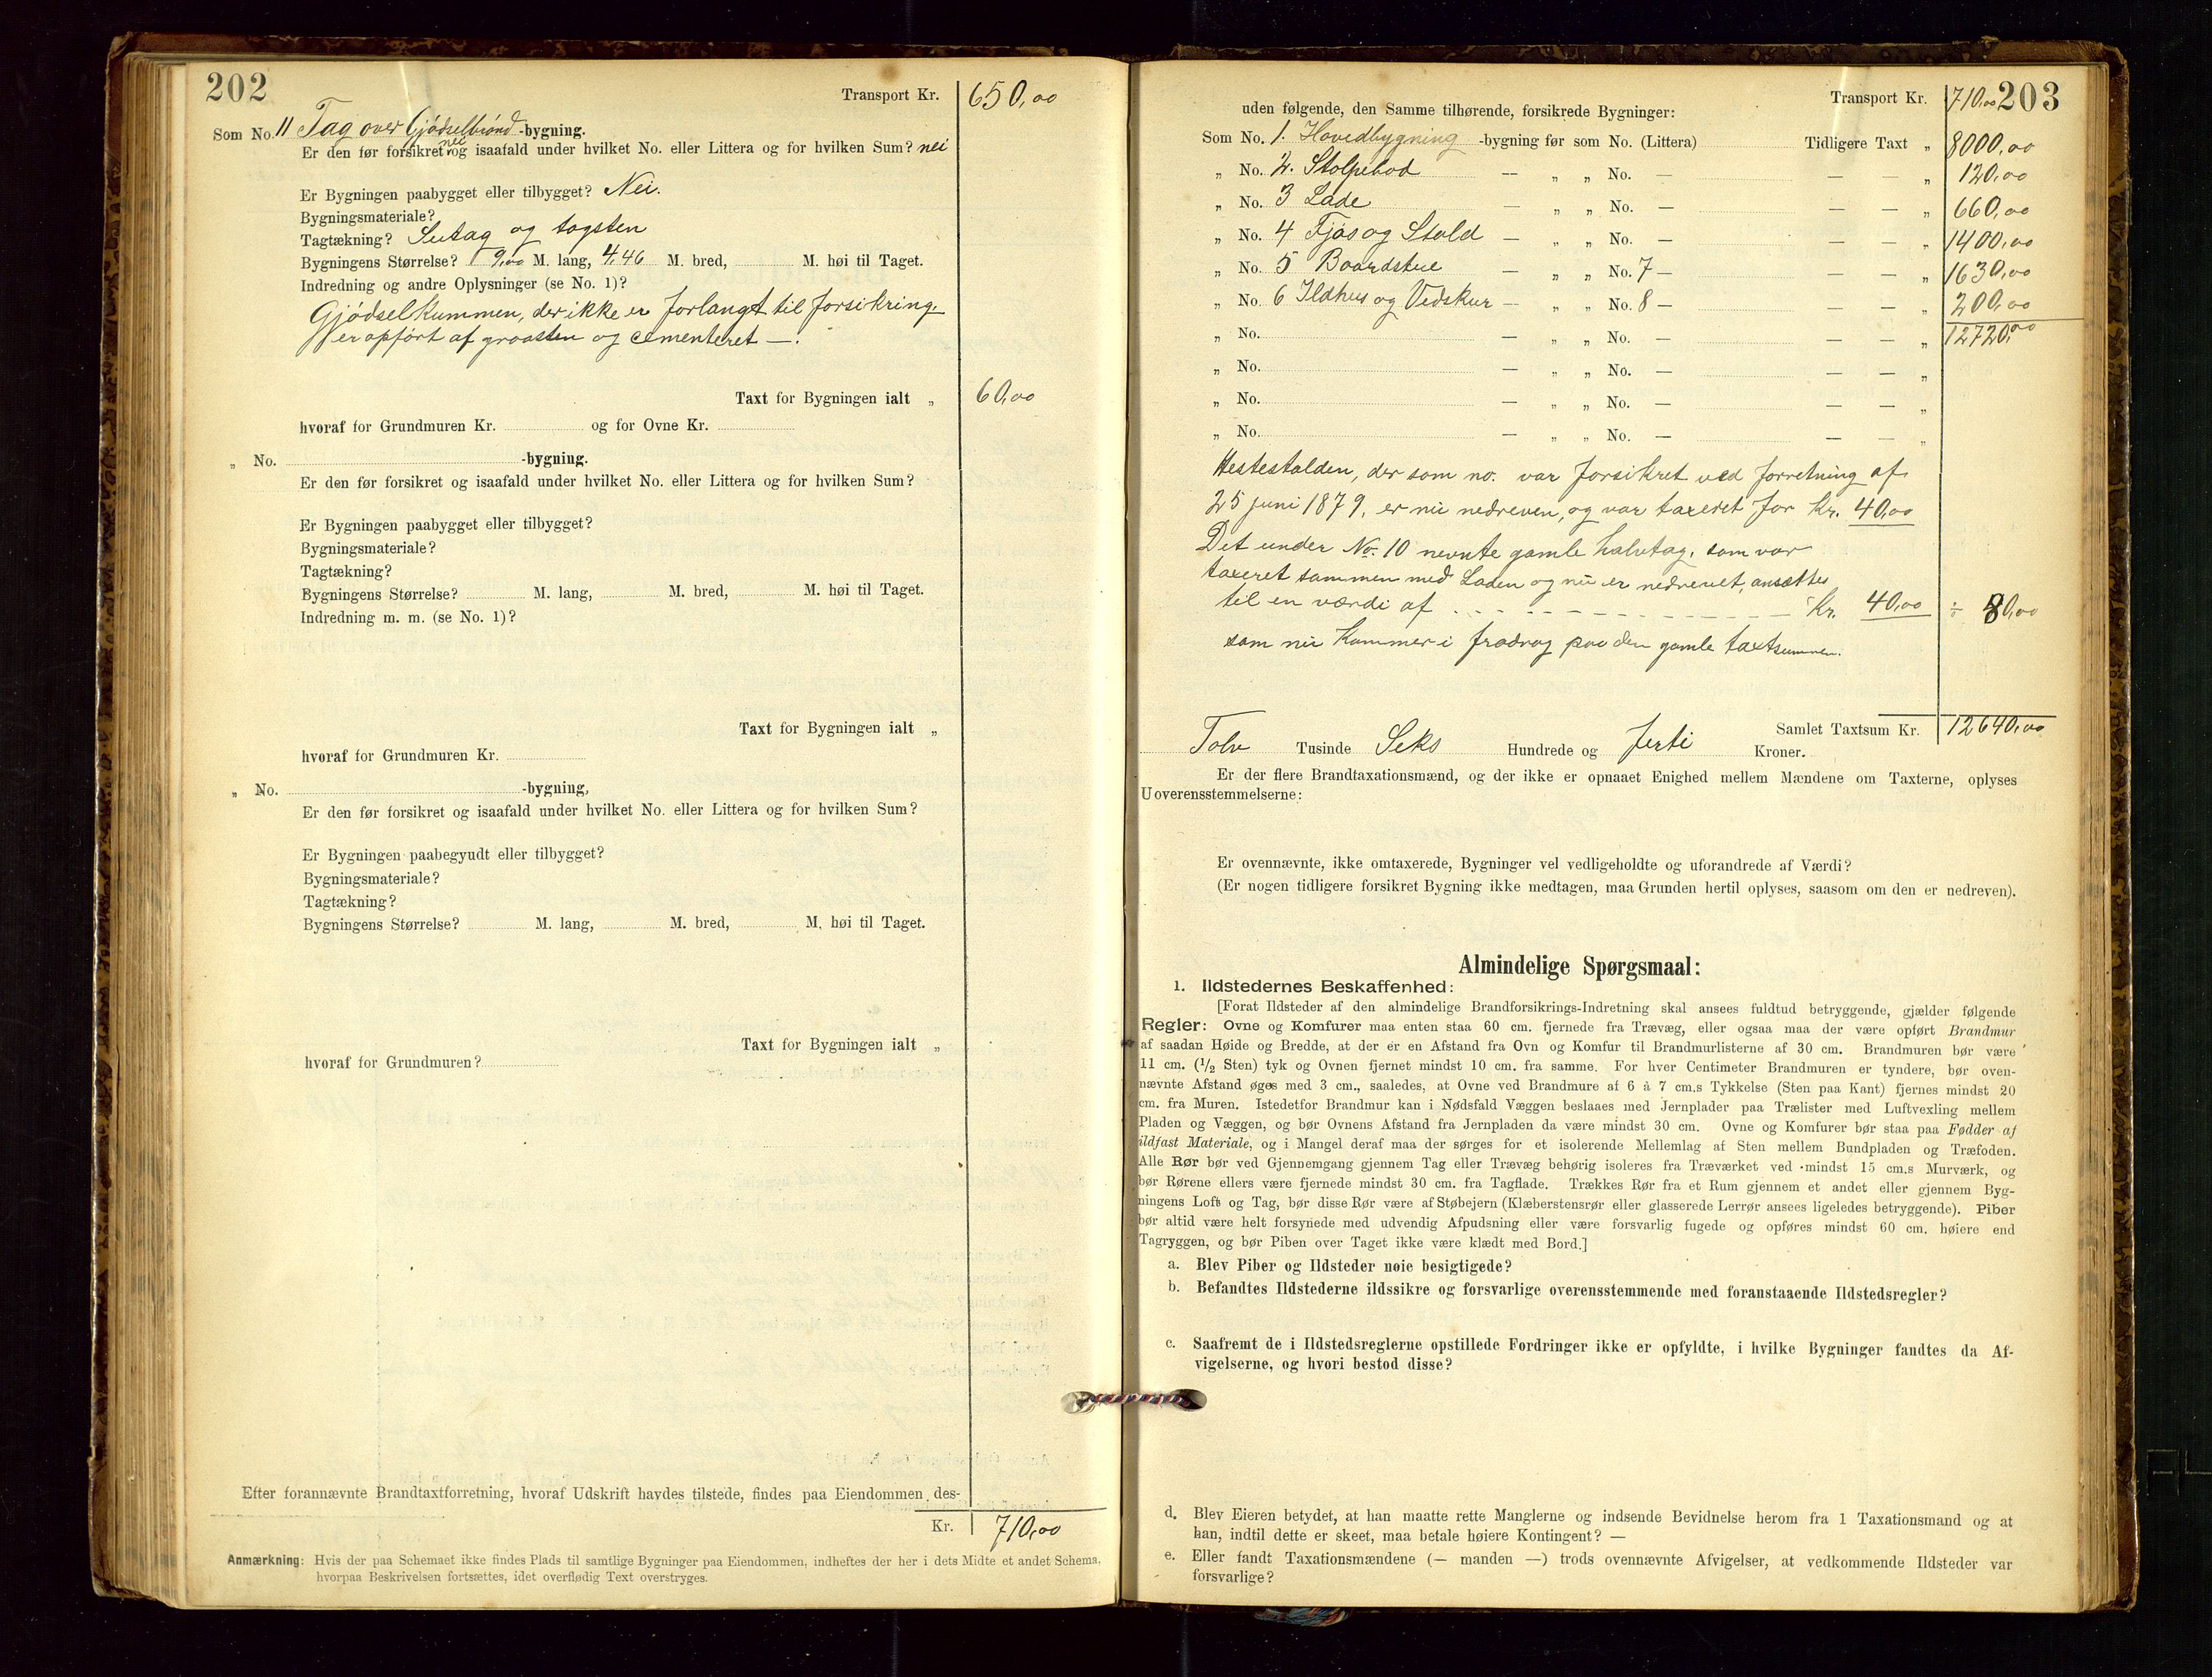 202
Transport Kr. 650,00
Som No. 11 Tag over Gjødselbrønd -bygning.
Er den før forsikret nei og isaafald under hvilket No. eller Littera og for hvilken Sum? nei
Er Bygningen paabygget eller tilbygget? Nei.
Bygningsmateriale?
Tagtækning? Sutag og tagsten
Bygningens Størrelse? 9,00 M. lang, 4,46 M. bred, M. høi til Taget.
Indredning og andre Oplysninger (se No. 1)?
Gjødselkummen, der ikke er forlangt til forsikring,
er opført af graasten og cementeret —.
Taxt for Bygningen ialt „ 60,00
hvoraf for Grundmuren Kr. og for Ovne Kr.
„ No. -bygning.
Er den før forsikret og isaafald under hvilket No. eller Littera og for hvilken Sum?
Er Bygningen paabygget eller tilbygget?
Bygningsmateriale?
Tagtækning?
Bygningens Størrelse? M. lang, M. bred, M. høi til Taget.
Indredning m. m. (se No. 1)?
Taxt for Bygningen ialt „
hvoraf for Grundmuren Kr.
„ No. -bygning,
Er den før forsikret og isaafald under hvilket No. eller Littera og for hvilken Sum?
Er Bygningen paabegyudt eller tilbygget?
Bygningsmateriale?
Tagtækning?
Bygningens Størrelse? M. lang, M. bred, M. høi til Taget.
Taxt for Bygningen ialt „
hvoraf for Grundmuren?
Efter forannævnte Brandtaxtforretning, hvoraf Udskrift havdes tilstede, findes paa Eiendommen des-
Kr. 710,00
Anmærkning: Hvis der paa Schemaet ikke findes Plads til samtlige Bygninger paa Eiendommen, indheftes der her i dets Midte et andet Schema,
hvorpaa Beskrivelsen fortsættes, idet overflødig Text overstryges.
Transport Kr. 710,00 203
uden følgende, den Samme tilhørende, forsikrede Bygninger:
Som No. 1. Hovedbygning -bygning før som No. (Littera) Tidligere Taxt „ 8000,00
„ No. 2. Stolpebod — „ „ No. — — — „ 120,00
„ No. 3 Lade — „ „ No. — — — „ 660,00
„ No. 4 Fjøs og Stald — „ „ No. — — — „ 1400,00
„ No. 5 Baardstue — „ „ No. 7 — — — „ 1630,00
„ No. 6 Ildhus og Vedskur — „ „ No. 8 — — — „ 200,00
„ No. — „ „ No. — — — „ 12720,00
„ No. — „ „ No. — — — „
„ No. — „ „ No. — — — „
„ No. — „ „ No. — — — „
Hestestalden, der som no. var forsikret ved forretning af
25 juni 1879, er nu nedreven, og var taxeret for Kr. 40,00
Det under No. 10 nevnte gamle halvtag, som var
taxeret sammen med Laden og nu er nedrevet, ansættes
til en værdi af - - - - - Kr. 40,00 ÷ 80,00
som nu kommer i fradrag paa den gamle taxtsummen.
Samlet Taxtsum Kr. 12640,00
Tolv Tusinde Seks Hundrede og Førti Kroner.
Er der flere Brandtaxationsmænd, og der ikke er opnaaet Enighed mellem Mændene om Taxterne, oplyses
Uoverensstemmelserne:
Er ovennævnte, ikke omtaxerede, Bygninger vel vedligeholdte og uforandrede af Værdi?
(Er nogen tidligere forsikret Bygning ikke medtagen, maa Grunden hertil oplyses, saasom om den er nedreven).
Almindelige Spørgsmaal:
1. Ildstedernes Beskaffenhed:
[Forat Ildsteder af den almindelige Brandforsikrings-Indretning skal ansees fuldtud betryggende, gjælder følgende
Regler: Ovne og Komfurer maa enten staa 60 cm. fjernede fra Trævæg, eller ogsaa maa der være opført Brandmur
af saadan Høide og Bredde, at der er en Afstand fra Ovn og Komfur til Brandmurlisterne af 30 cm. Brandmuren bør være
11 cm. (1/2 Sten) tyk og Ovnen fjernet mindst 10 cm. fra samme. For hver Centimeter Brandmuren er tyndere, bør oven-
nævnte Afstand øges med 3 cm., saaledes, at Ovne ved Brandmure af 6 à 7 cm.s Tykkelse (Sten paa Kant) fjernes mindst 20
cm. fra Muren. Istedetfor Brandmur kan i Nødsfald Væggen beslaaes med Jernplader paa Trælister med Luftvexling mellem
Pladen og Væggen, og bør Ovnens Afstand fra Jernpladen da være mindst 30 cm. Ovne og Komfurer bør staa paa Fødder af
ildfast Materiale, og i Mangel deraf maa der sørges for et isolerende Mellemlag af Sten mellem Bundpladen og Træfoden.
Alle Rør bør ved Gjennemgang gjennem Tag eller Trævæg behørig isoleres fra Træværket ved mindst 15 cm.s Murværk, og
bør Rørene ellers være fjernede mindst 30 cm. fra Tagflade. Trækkes Rør fra et Rum gjennem et andet eller gjennem Byg-
ningens Loft og Tag, bør disse Rør være af Støbejern (Klæberstensrør eller glasserede Lerrør ansees ligeledes betryggende). Piber
bør altid være helt forsynede med udvendig Afpudsning eller være forsvarlig fugede og opføres mindst 60 cm. høiere end
Tagryggen, og bør Piben over Taget ikke være klædt med Bord.]
a. Blev Piber og Ildsteder nøie besigtigede?
b. Befandtes Ildstederne ildssikre og forsvarlige overensstemmende med foranstaaende Ildstedsregler?
c. Saafremt de i Ildstedsreglerne opstillede Fordringer ikke er opfyldte, i hvilke Bygninger fandtes da Af-
vigelserne, og hvori bestod disse?
d. Blev Eieren betydet, at han maatte rette Manglerne og indsende Bevidnelse herom fra 1 Taxationsmand og at
han, indtil dette er skeet, maa betale høiere Kontingent? —
e. Eller fandt Taxationsmændene (— manden —) trods ovennævnte Afvigelser, at vedkommende Ildsteder var
forsvarlige?